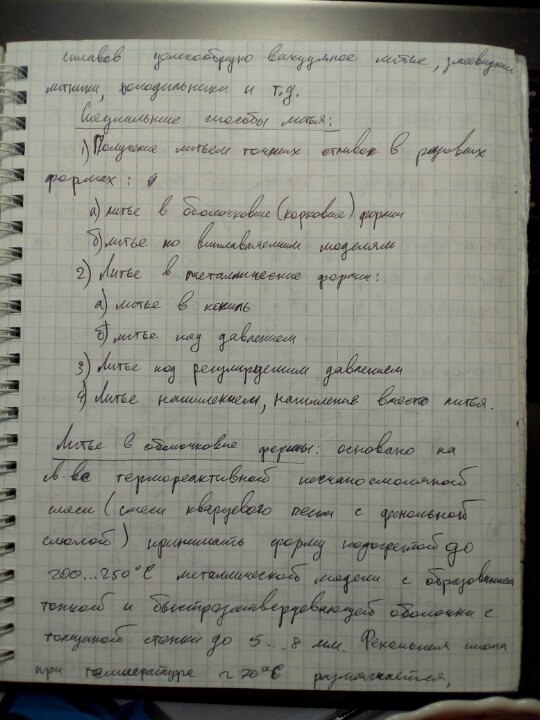 сплавов целесообразно вакуумное литье,
литники, холодильники и т.д.
Специальные способы литья:
1) Получение литьем точных отливок в разовых
формах:
а) литье в оболочковые (корковые) формы
б) литье по выплавляемым моделям
2) Литье в металлические формы:
а) литье в кокиль
б) литье под давлением
3) Литье под регулируемым давлением
4) Литье намывлением, вместо литья.
Литье в оболочковые формы: основано на
термореактивной песчаносмоляной
смеси (смеси кварцевого песка с фенольной
смолой) принимать форму подогретой до
200...250°С металлической модели с образованием
тонкой и быстрозатвердевающей оболочки с
толщиной стенки до 5...8 мм. Фенольная смола
при температуре ~70°С размягчается,